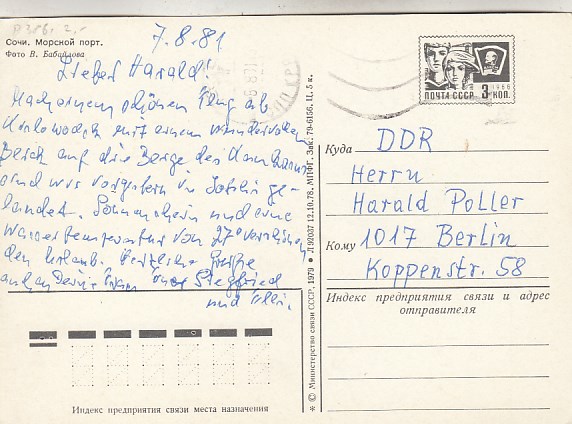 Сочи. Морской порт.
Фото В. Бабайлова
7.8.81
Lieber Harald!
Nach einem schönen Flug ab
Kislowodsk mit einem wundervollen
Blick auf die Berge des Kaukasus
sind wir vorgestern in Sotschi ge-
landet. Sonnenschein und eine
Wassertemperatur von 27° verschönen
den Urlaub. Herzliche Grüße
auch an Deine
Siegfried
und
ПОЧТА СССР 3 КОП.
1966
Куда DDR
Herrn
Harald Poller
Кому 1017 Berlin
Koppenstr. 58
Индекс предприятия связи и адрес
отправителя
Индекс предприятия связи места назначения
* © Министерство связи СССР, 1979 ● Л 92037 12.10.78. МПФГ. Зак. 79-6156. Ц. 5 к.